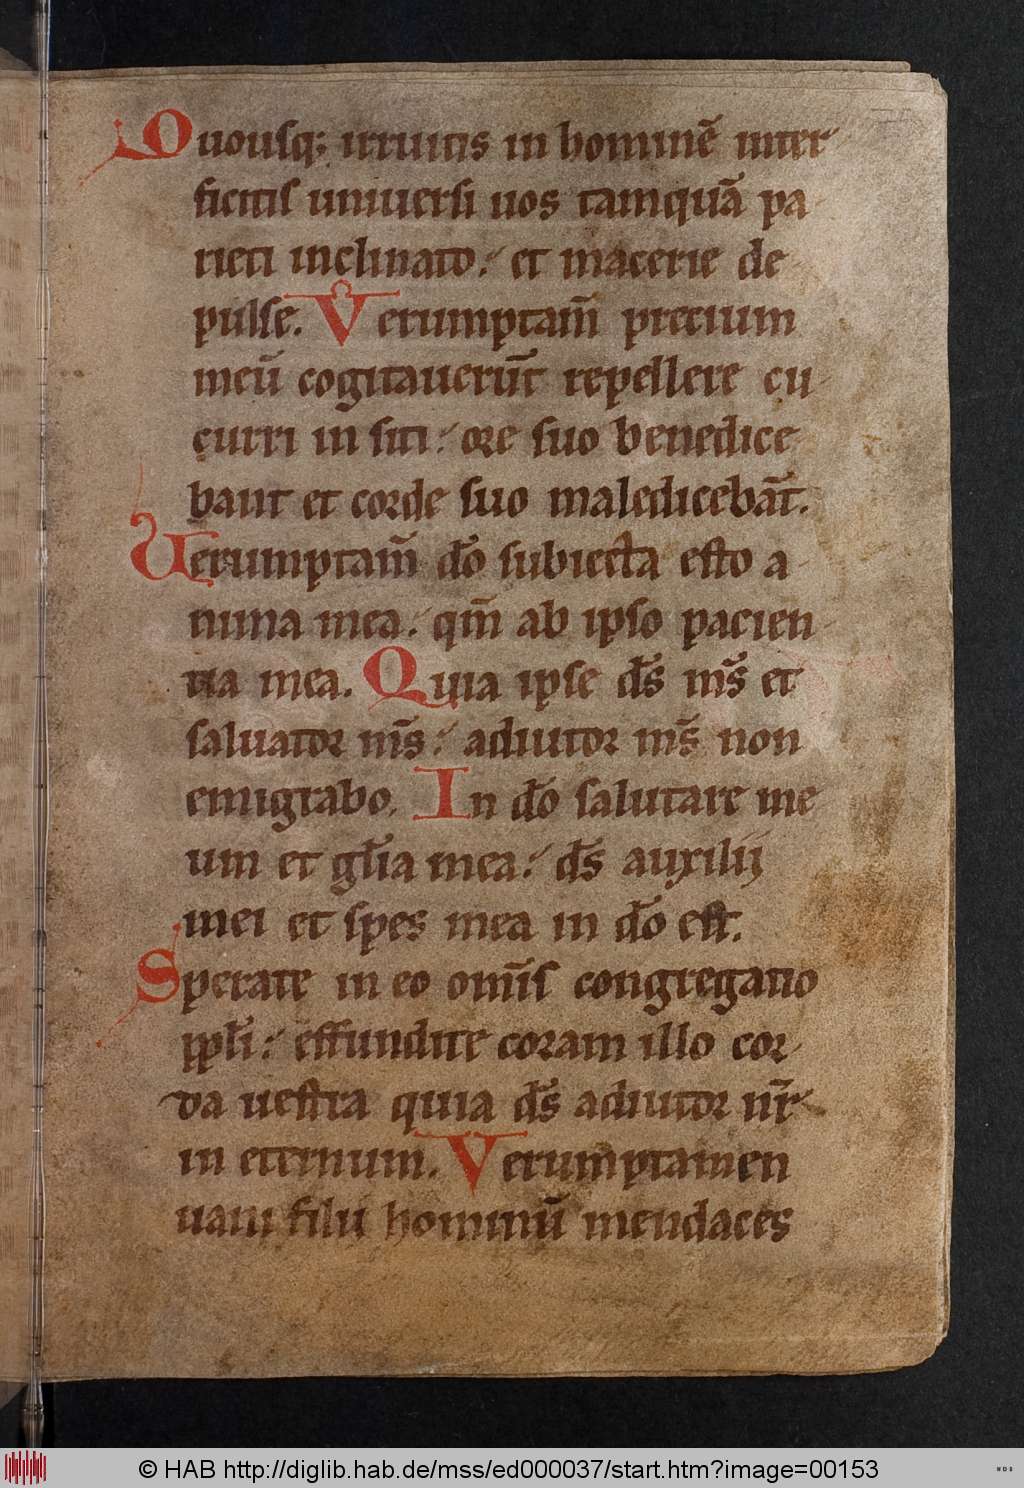 Quousq; irruitis in hominē inter
ficitis uniuersi uos tamquā pa
rieti inclinato. et macerie de
pulse. Verumptam̄ precium
meū cogitauerūt repellere cu
curri in siti. ore suo benedice
bant et corde suo maledicebāt.
Uerumptam̄ do̅ subiecta esto a
nima mea. qm̄ ab ipso pacien
tia mea. Quia ipse ds̅ ms̅ et
saluator ms̅. adiutor ms̅ non
emigrabo. In do̅ salutare me
um et gl̅ia mea. ds̅ auxilij
mei et spes mea in do̅ est.
Sperate in eo om̅is congregatio
ppl̅i. effundite coram illo cor
da uestra quia ds̅ adiutor nr̅
in eternum. Verumptamen
uani filii hominū mendaces
© HAB http://diglib.hab.de/mss/ed000037/start.htm?image=00153